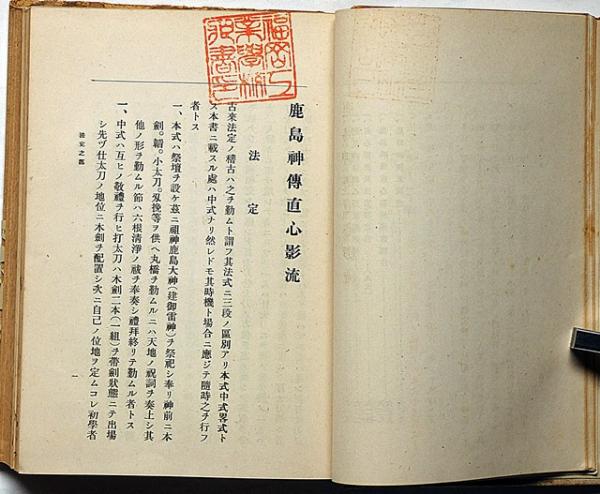 鹿島神傳直心影流
法定
古來法定ノ稽古ハ之ヲ勤ムト謂フ其法式ニ三段ノ區別アリ本式中式畧式ト
ス本書ニ載スル處ハ中式ナリ然レドモ其時機ト場合ニ應ジテ隨時之ヲ行フ
者トス
一、本式ハ祭壇ヲ設ケ茲ニ祖神鹿島大神(建御雷神)ヲ祭祀シ奉リ神前ニ本
劍。韜。小太刀。刄挽等ヲ供ヘ丸橋ヲ勤ムルニハ天地ノ祝詞ヲ奏上シ其
他ノ形ヲ勤ムル節ハ六根清淨ノ祓ヲ奉奏シ禮拜終リテ勤ムル者トス
一、中式ハ互ヒノ敬禮ヲ行ヒ打太刀ハ木劍二本(一組)ヲ帶劍狀態ニテ出場
シ先ヅ仕太刀ノ地位ニ木劍ヲ配置シ次ニ自己ノ位地ヲ定ムコレ初學者
法定之部
一
福岡工
業學校
圖書印